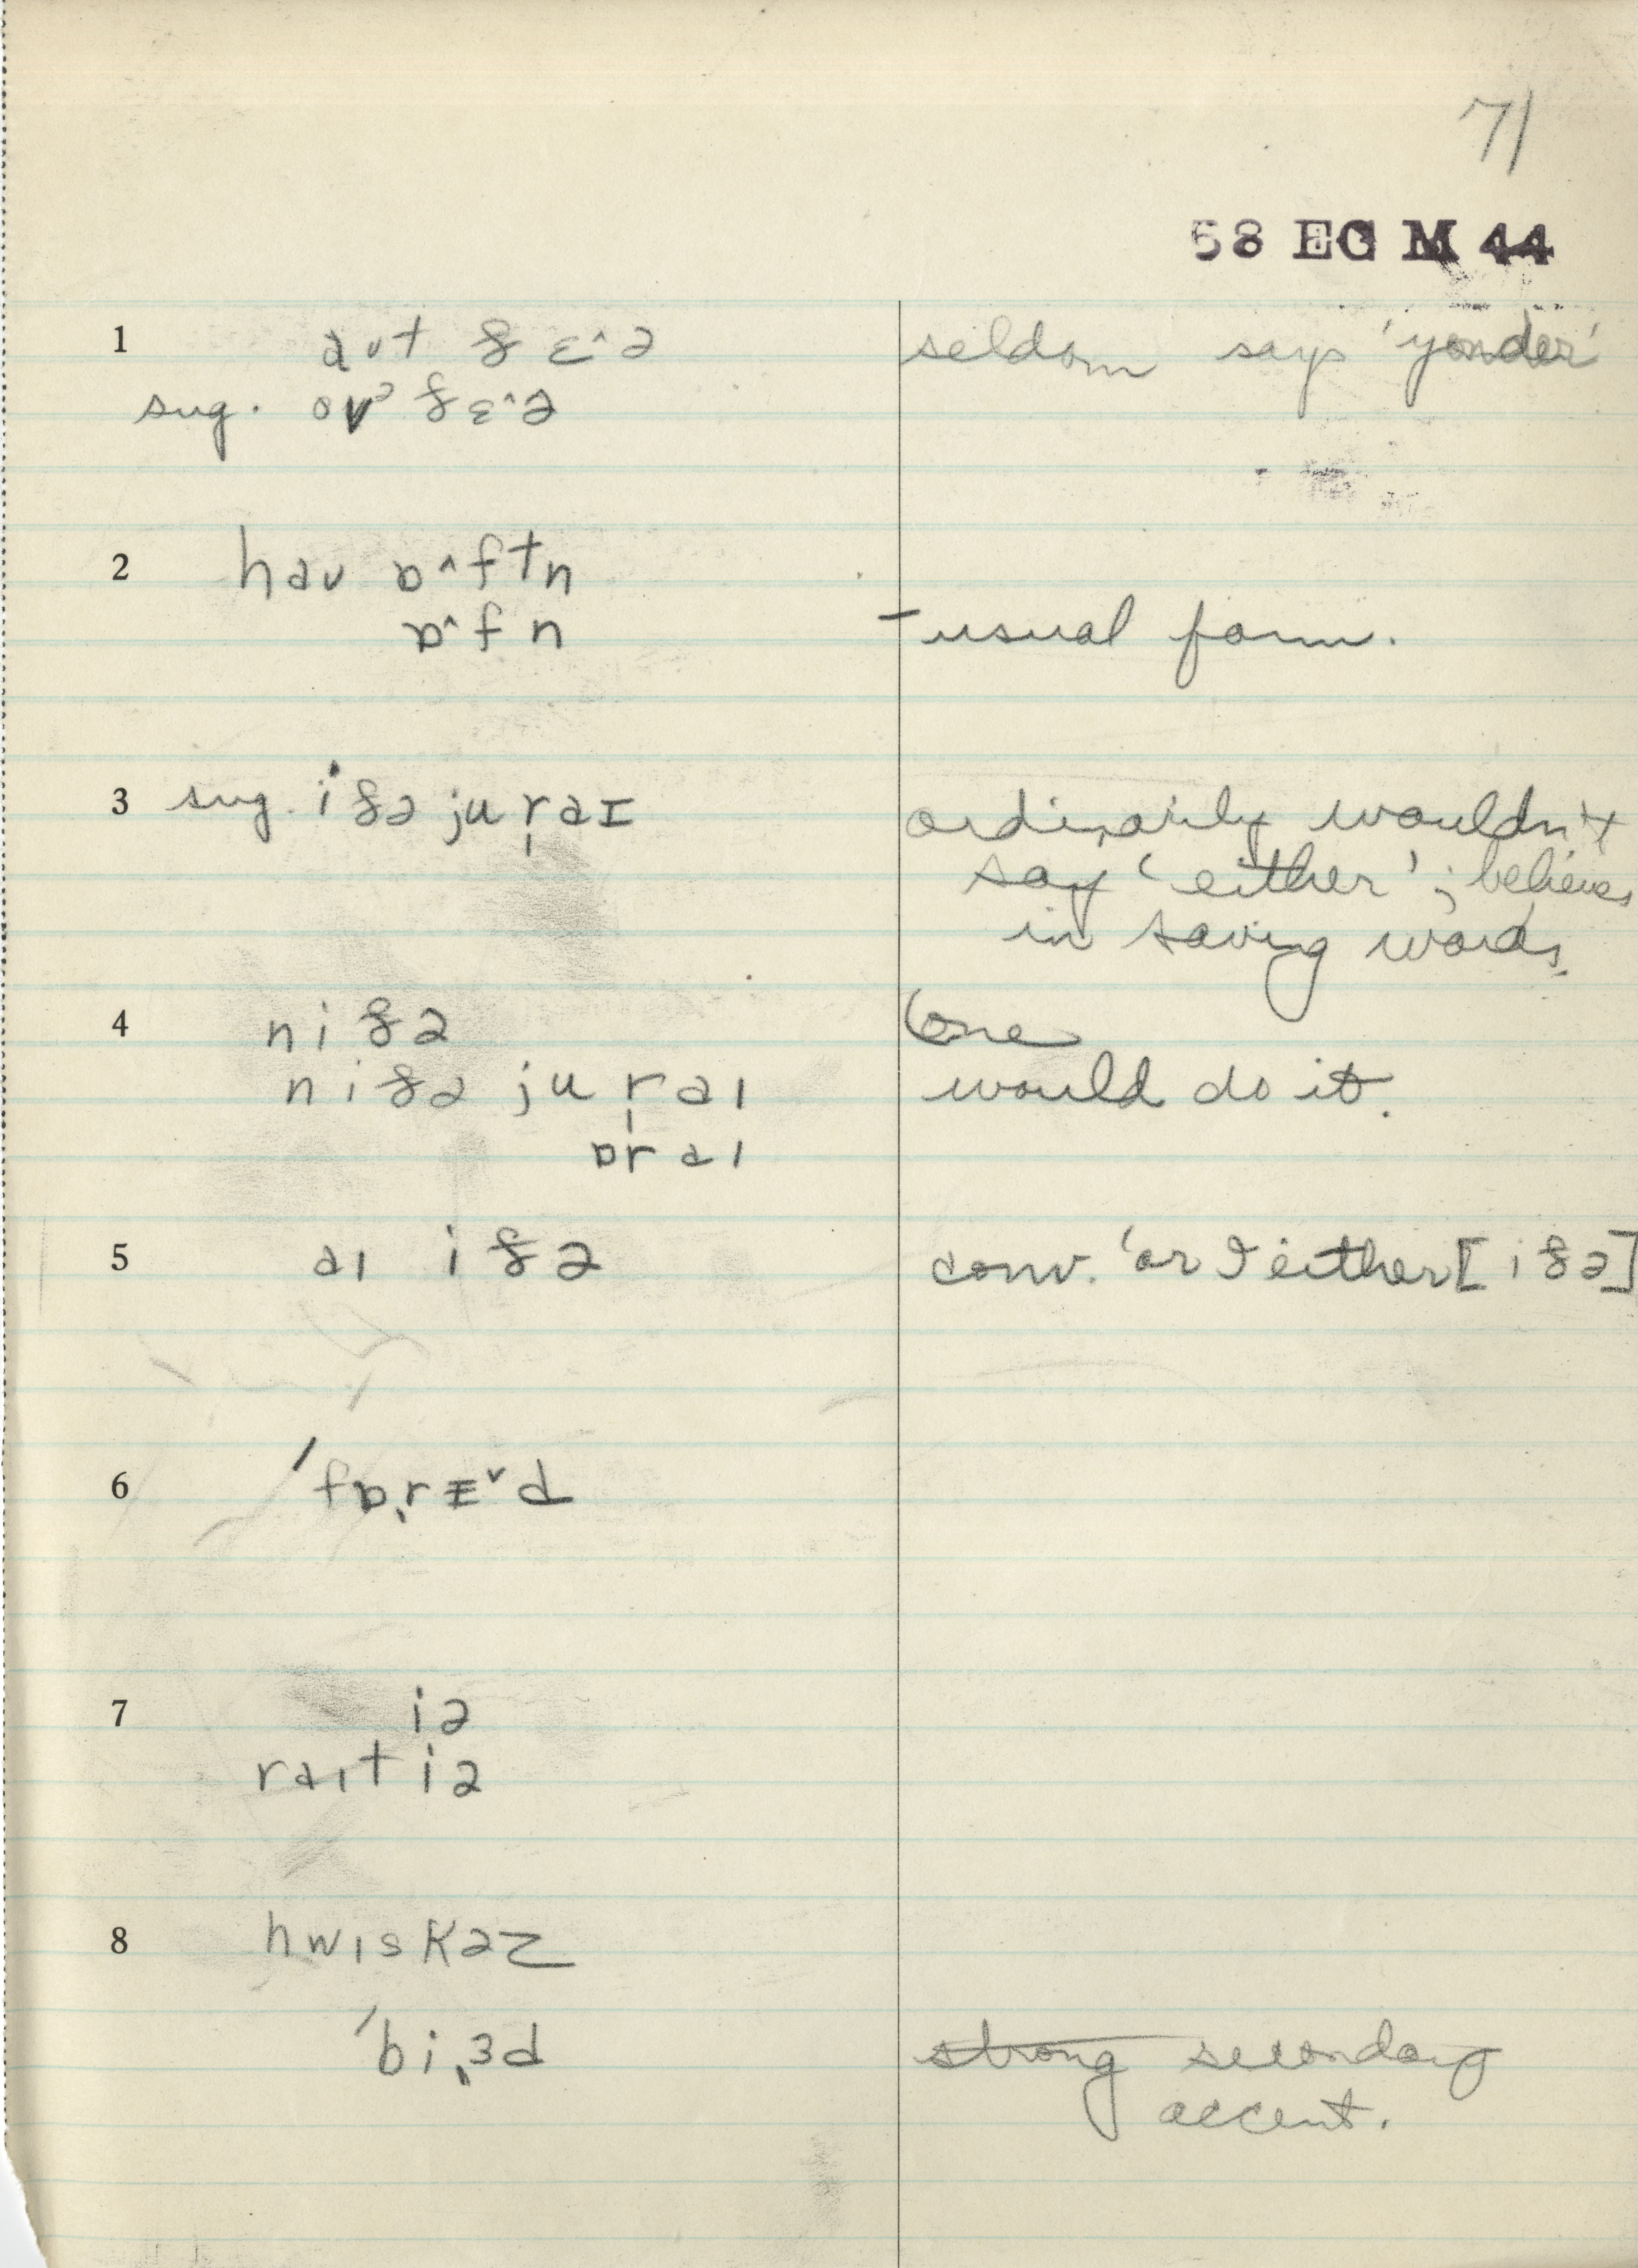 71
58 EG M 44
1 aʊt ðɛ^ə seldom says 'yonder'
sug. oʊvə ðɛ^ə
2 haʊ ɒ^ftn
ɒ^fn - usual form.
3 sug. iðə ju r̩ aɪ ordinarily wouldn't
say 'either'; believes
in saving words.
4 niðə (one
niðə ju r̩ aɪ would do it.
ɒr aɪ
5 aɪ iðə conv. 'or I either [iðə]
6 ˈfɒˌrɪˇd
7 iə
raɪt iə
8 hwɪskəz
ˈbiˌɜd strong secondary
accent.